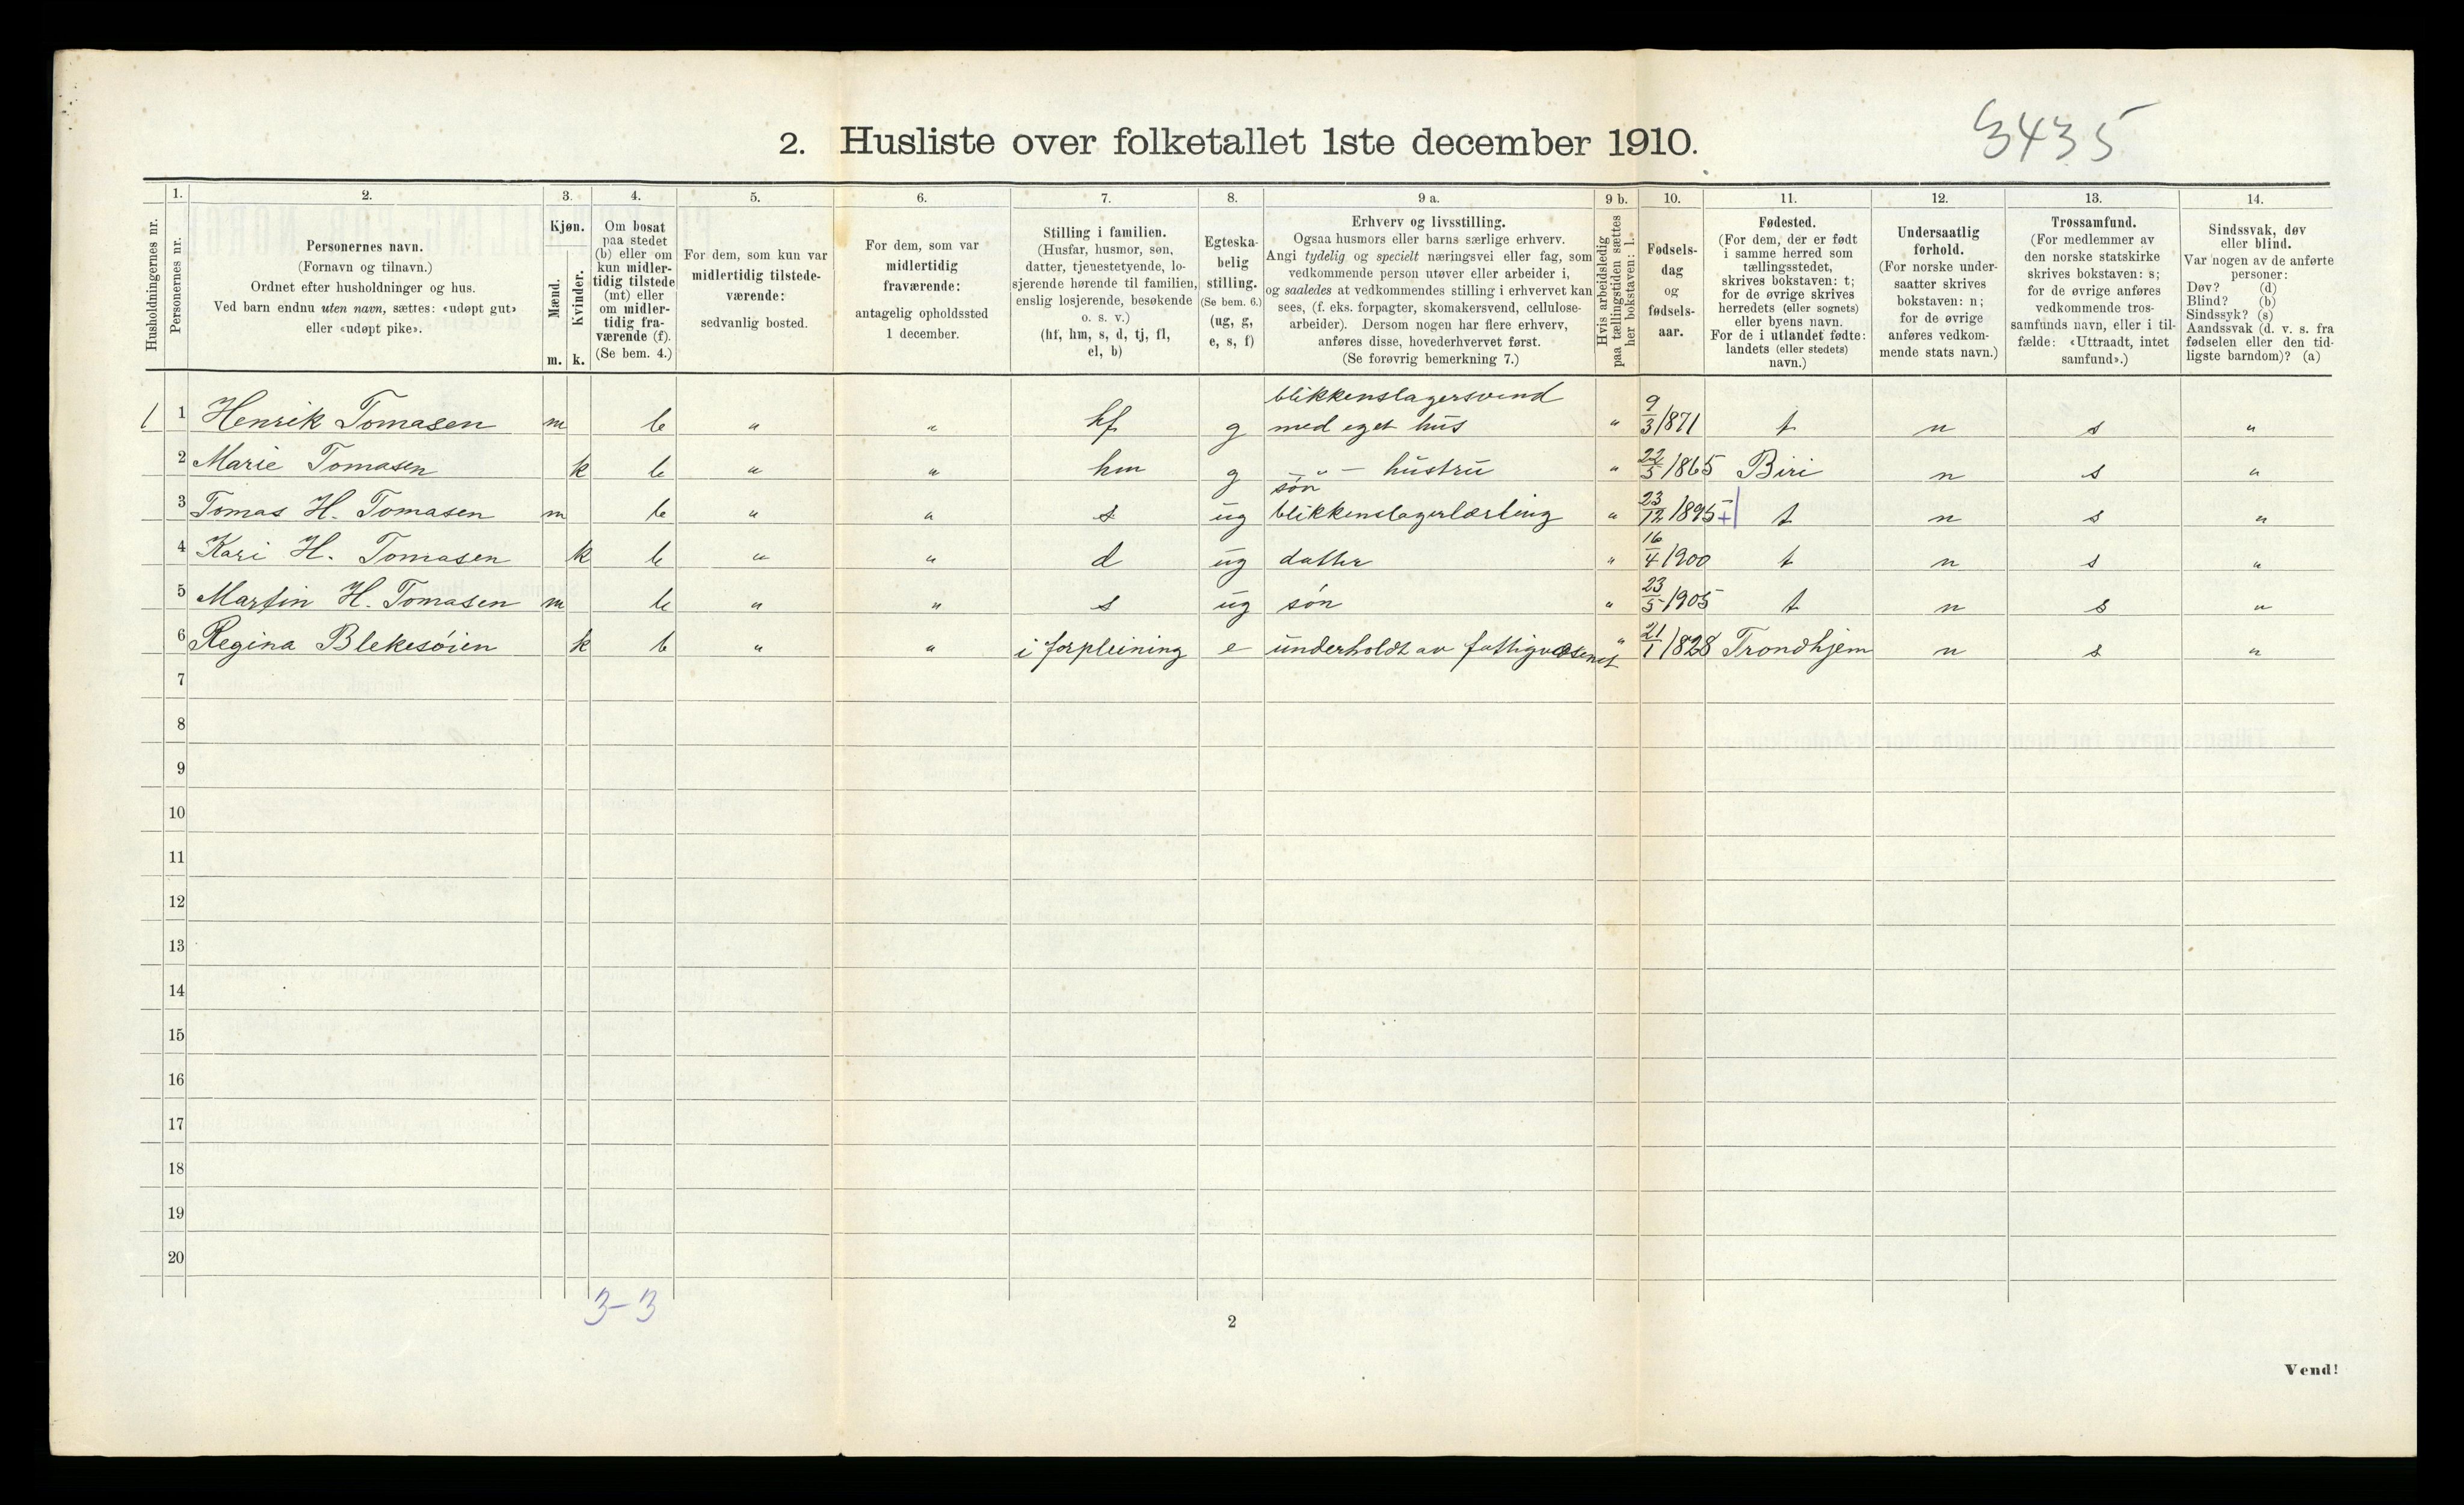 3435
2. Husliste over folketallet 1ste december 1910.
Husholdningernes nr.
1.
Personernes nr.
2.
Personernes navn.
(Fornavn og tilnavn.)
Ordnet efter husholdninger og hus.
Ved barn endnu uten navn, sættes: «udøpt gut»
eller «udøpt pike».
3.
Kjøn.
Mænd.
Kvinder.
m. k.
4.
Om bosat
paa stedet
(b) eller om
kun midler-
tidig tilstede
(mt) eller
om midler-
tidig fra-
værende (f).
(Se bem. 4.)
5.
For dem, som kun var
midlertidig tilstede-
værende:
sedvanlig bosted.
6.
For dem, som var
midlertidig
fraværende:
antagelig opholdssted
1 december.
7.
Stilling i familien.
(Husfar, husmor, søn,
datter, tjenestetyende, lo-
sjerende hørende til familien,
enslig losjerende, besøkende
o. s. v.)
(hf, hm, s, d, tj, fl,
el, b)
8.
Egteska-
belig
stilling.
(Se bem. 6.)
(ug, g,
e, s, f)
9 a.
Erhverv og livsstilling.
Ogsaa husmors eller barns særlige erhverv.
Angi tydelig og specielt næringsvei eller fag, som
vedkommende person utøver eller arbeider i,
og saaledes at vedkommendes stilling i erhvervet kan
sees, (f. eks. forpagter, skomakersvend, cellulose-
arbeider). Dersom nogen har flere erhverv,
anføres disse, hovederhvervet først.
(Se forøvrig bemerkning 7.)
9 b.
Hvis arbeidsledig
paa tællingstiden sættes
her bokstaven: l.
10.
Fødsels-
dag
og
fødsels-
aar.
11.
Fødested.
(For dem, der er født
i samme herred som
tællingsstedet,
skrives bokstaven: t;
for de øvrige skrives
herredets (eller sognets)
eller byens navn.
For de i utlandet fødte:
landets (eller stedets)
navn.)
12.
Undersaatlig
forhold.
(For norske under-
saatter skrives
bokstaven: n;
for de øvrige
anføres vedkom-
mende stats navn.)
13.
Trossamfund.
(For medlemmer av
den norske statskirke
skrives bokstaven: s;
for de øvrige anføres
vedkommende tros-
samfunds navn, eller i til-
fælde: «Uttraadt, intet
samfund».)
14.
Sindssvak, døv
eller blind.
Var nogen av de anførte
personer:
Døv? (d)
Blind? (b)
Sindssyk? (s)
Aandssvak (d. v. s. fra
fødselen eller den tid-
ligste barndom)? (a)
1 1 Henrik Tomasen m b " " hf g blikkenslagersvend med eget hus " 9/3 1871 t n s "
2 Marie Tomasen k b " " hm g " - hustru " 22/5 1865 Biri n s "
3 Tomas H. Tomasen m b " " s ug søn blikkenslagerlærling " 23/12 1895 t n s "
4 Kari H. Tomasen k b " " d ug datter " 16/4 1900 t n s "
5 Martin H. Tomasen m b " " s ug søn " 23/5 1905 t n s "
6 Regina Blekesøien k b " " i forpleining e underholdt av fattigvæsenet " 21/1 1828 Trondhjem n s "
7
8
9
10
11
12
13
14
15
16
17
18
19
20
3-3
2
Vend!